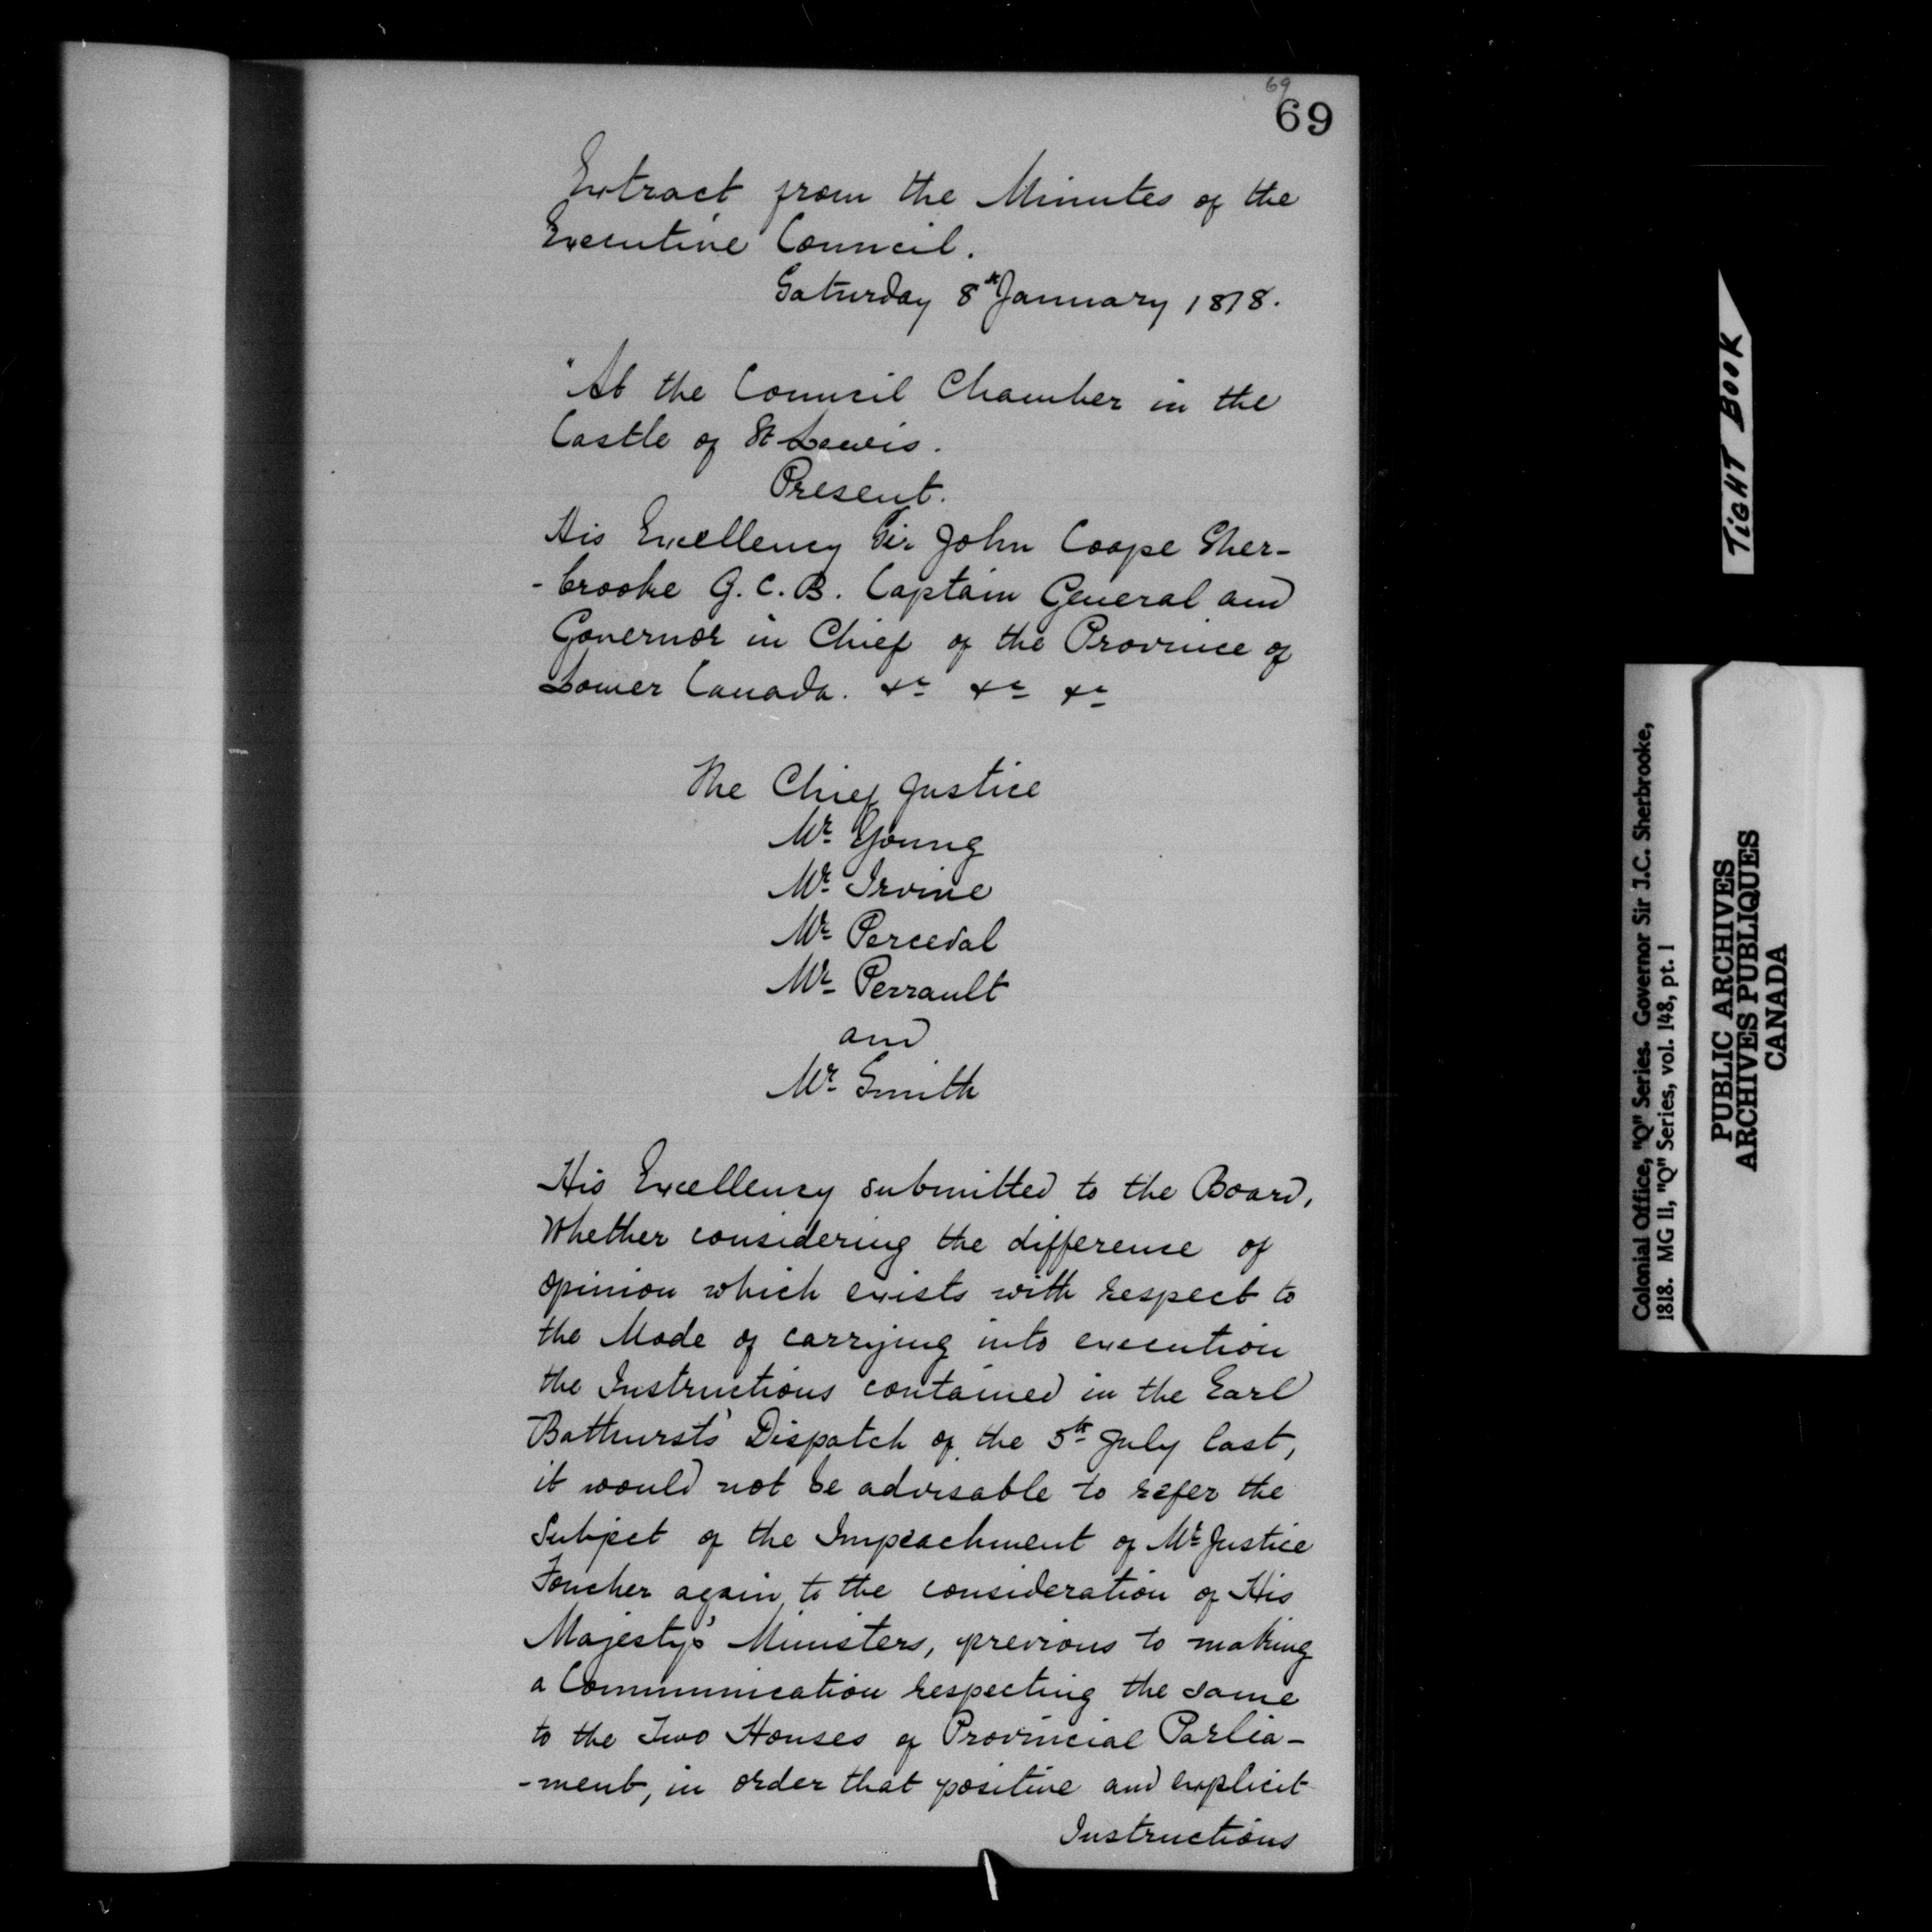 69
69
Extract from the Minutes of the
Executive Council.
Saturday 8th January 1818.
"At the Council Chamber in the
Castle of St Lewis.
Present.
His Excellency Sir John Coape Sher-
-brooke G.C.B. Captain General and
Governor in Chief of the Province of
Lower Canada. &c &c &c
The Chief Justice
Mr Young
Mr Irvine
Mr Percedal
Mr Perrault
and
Mr Smith
His Excellency submitted to the Board,
Whether considering the difference of
opinion which exists with respect to
the Mode of carrying into execution
the Instructions contained in the Earl
Bathurst's Dispatch of the 5th July last,
it would not be advisable to refer the
Subject of the Impeachment of Mr Justice
Foucher again, to the consideration of His
Majesty's Ministers, previous to making
a Communication respecting the same
to the Two Houses of Provincial Parlia-
-ment, in order that positive and explicit
Instructions
TIGHT BOOK
Colonial Office, "Q" Series. Governor Sir J.C. Sherbrooke,
1818. MG 11, "Q" Series, vol. 148, pt. 1
PUBLIC ARCHIVES
ARCHIVES PUBLIQUES
CANADA